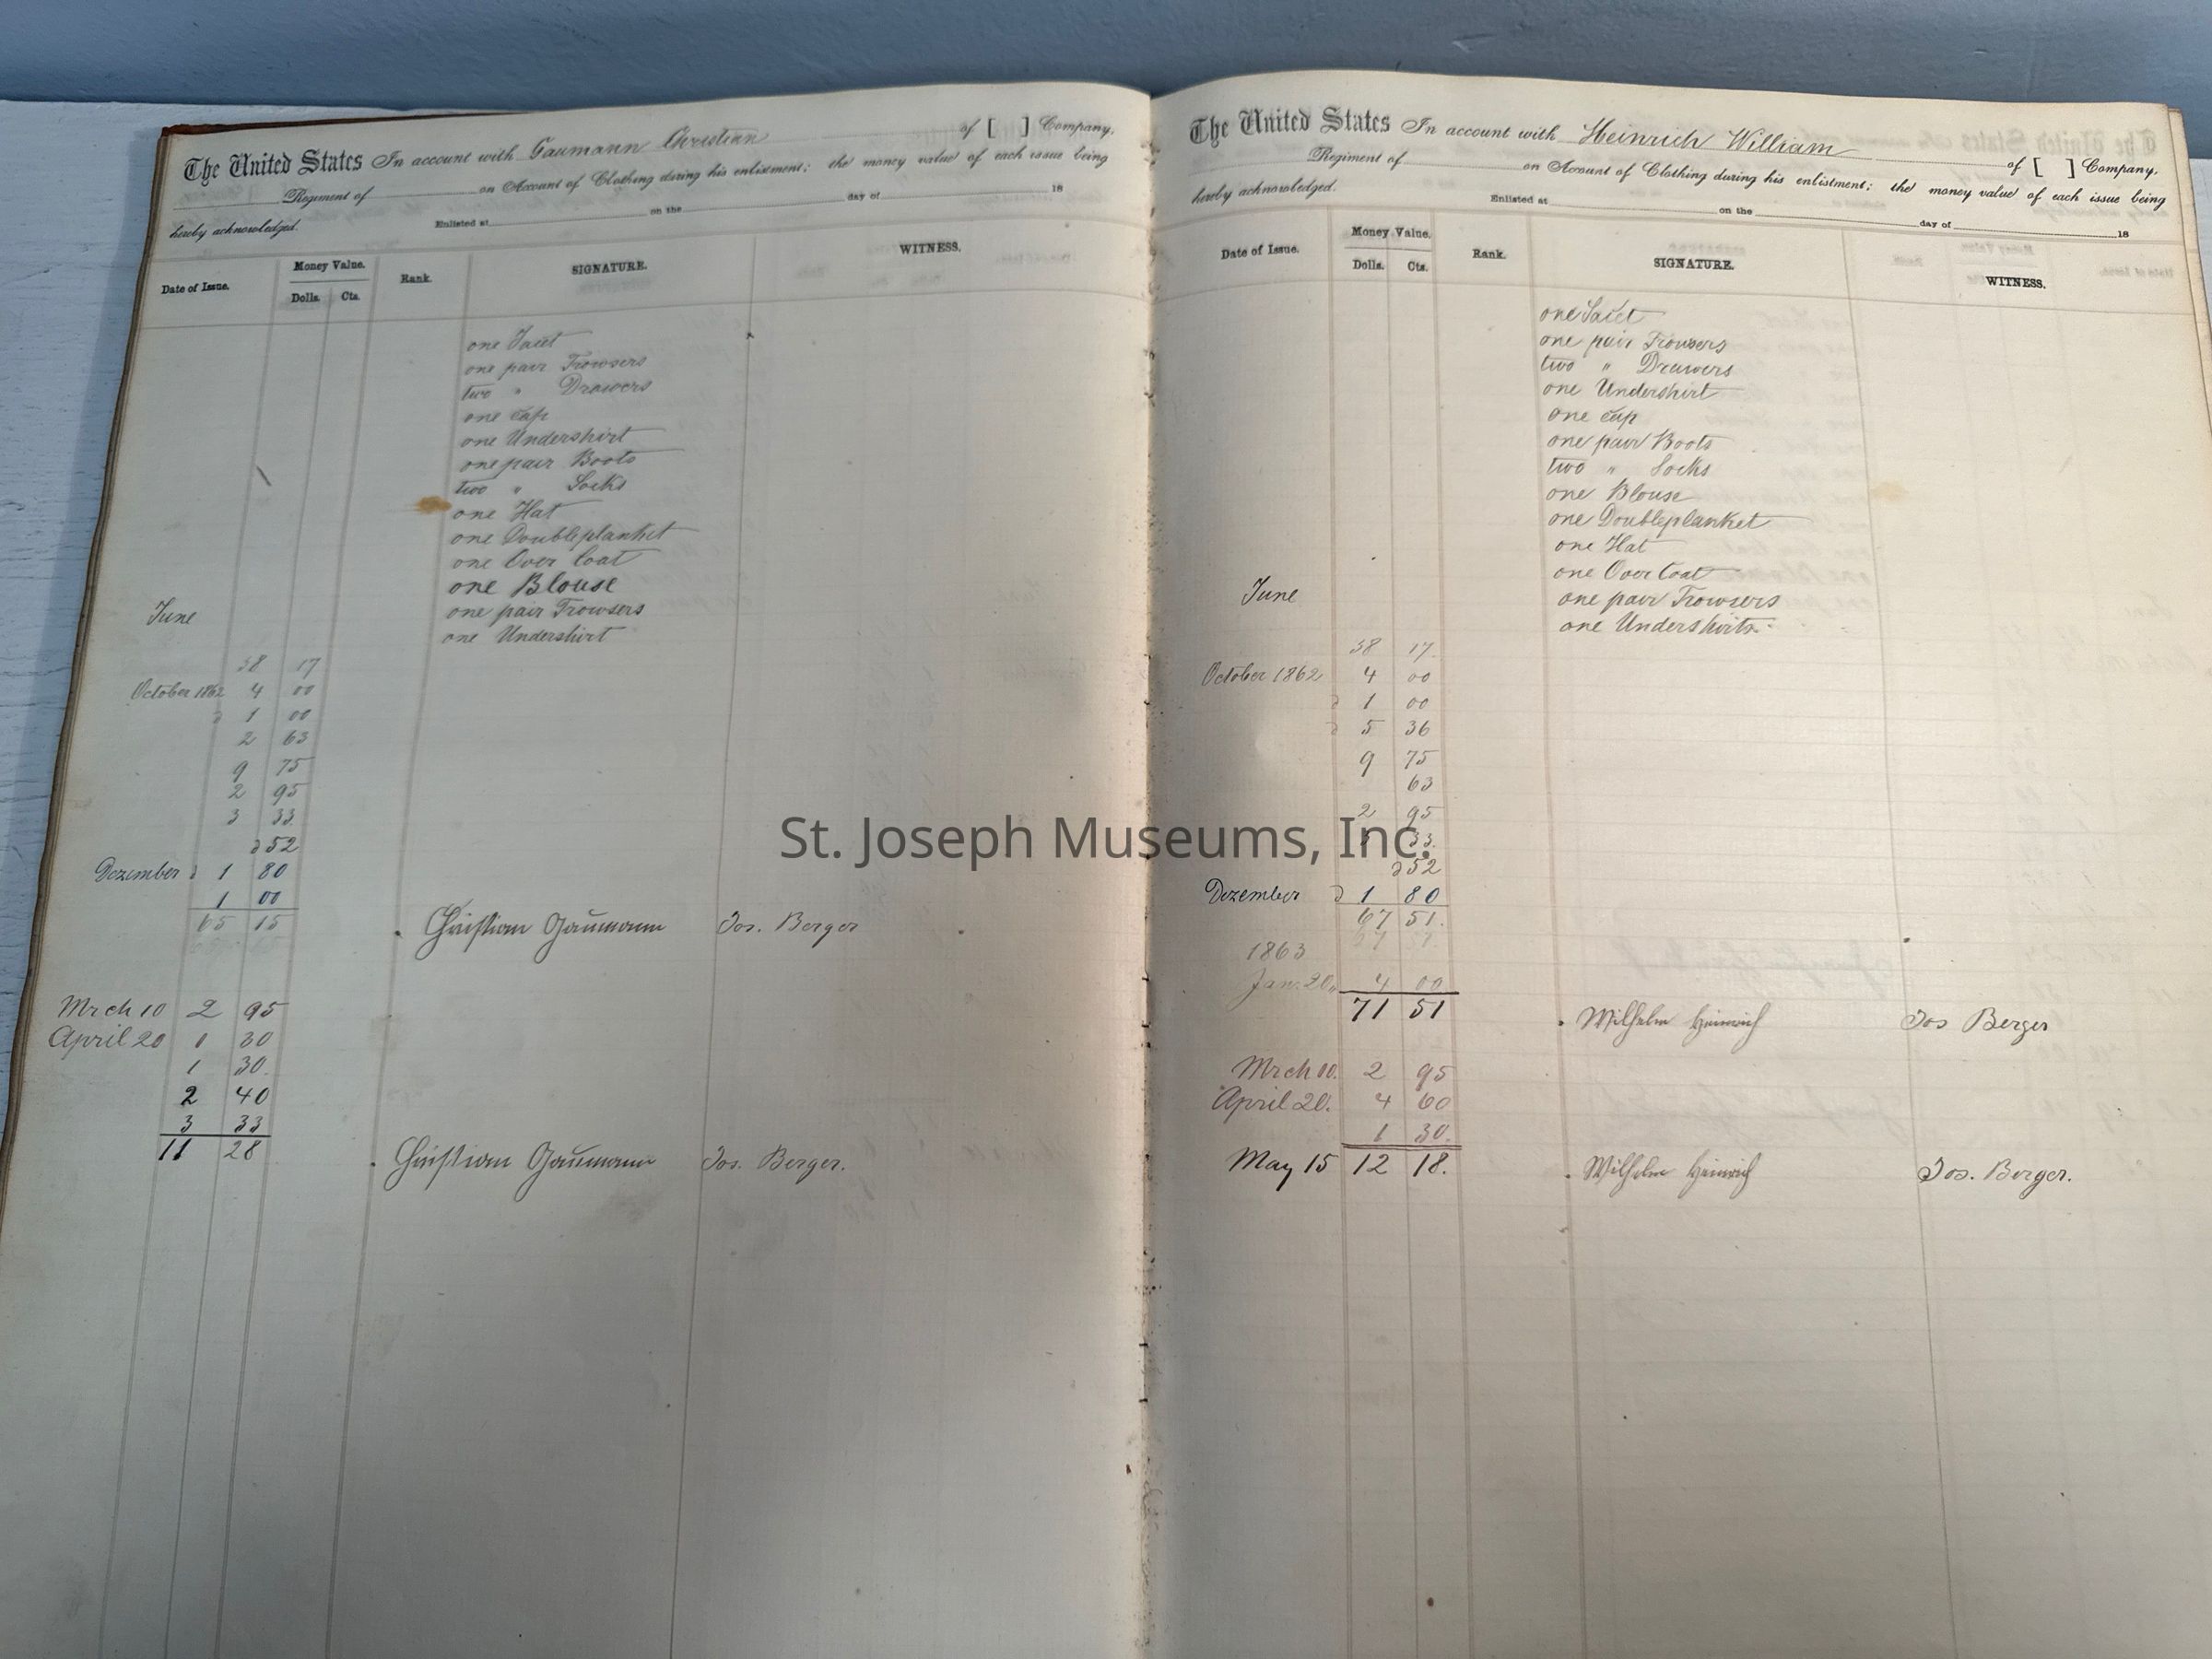 The United States In account with Gaumann Christian of [ ] Company,
Regiment of on Account of Clothing during his enlistment; the money value of each issue being
hereby acknowledged. Enlisted at on the day of 18
Date of Issue. Money Value. Rank. SIGNATURE. WITNESS.
Dolls. Cts.
one
one pair Trowsers
two " Drawers
one cap
one Undershirt
one pair Boots
two " Socks
one Hat
one Doubleplanket
one Over Coat
one Blouse
June one pair Trowsers
one Undershirt
38 17
October 1862 4 00
1 00
2 63
9 75
2 95
3 33
52
Dezember 1 80
1 00
65 15 Christian Gaumann Jos. Berger
Mrch 10 2 95
April 20 1 30
1 30.
2 40
3 33
11 28 Christian Gaumann Jos. Berger.
The United States In account with Heinrich William of [ ] Company,
Regiment of on Account of Clothing during his enlistment; the money value of each issue being
hereby acknowledged. Enlisted at on the day of 18
Date of Issue. Money Value. Rank. SIGNATURE. WITNESS.
Dolls. Cts.
one
one pair Trowsers
two " Drawers
one Undershirt
one cap
one pair Boots
two " Socks
one Blouse
one Doubleplanket
one Hat
one Over Coat
June one pair Trowsers
one Undershirts
38 17.
October 1862 4 00
1 00
5 36
9 75
63
2 95
3 33.
52
Dezember 1 80
67 51.
1863
Jan. 20 4 00
71 51 Wilhelm Heinrich Jos Berger
Mrch 10. 2 95
April 20. 4 60
1 30.
May 15 12 18. Wilhelm Heinrich Jos. Berger.
St. Joseph Museums, Inc.